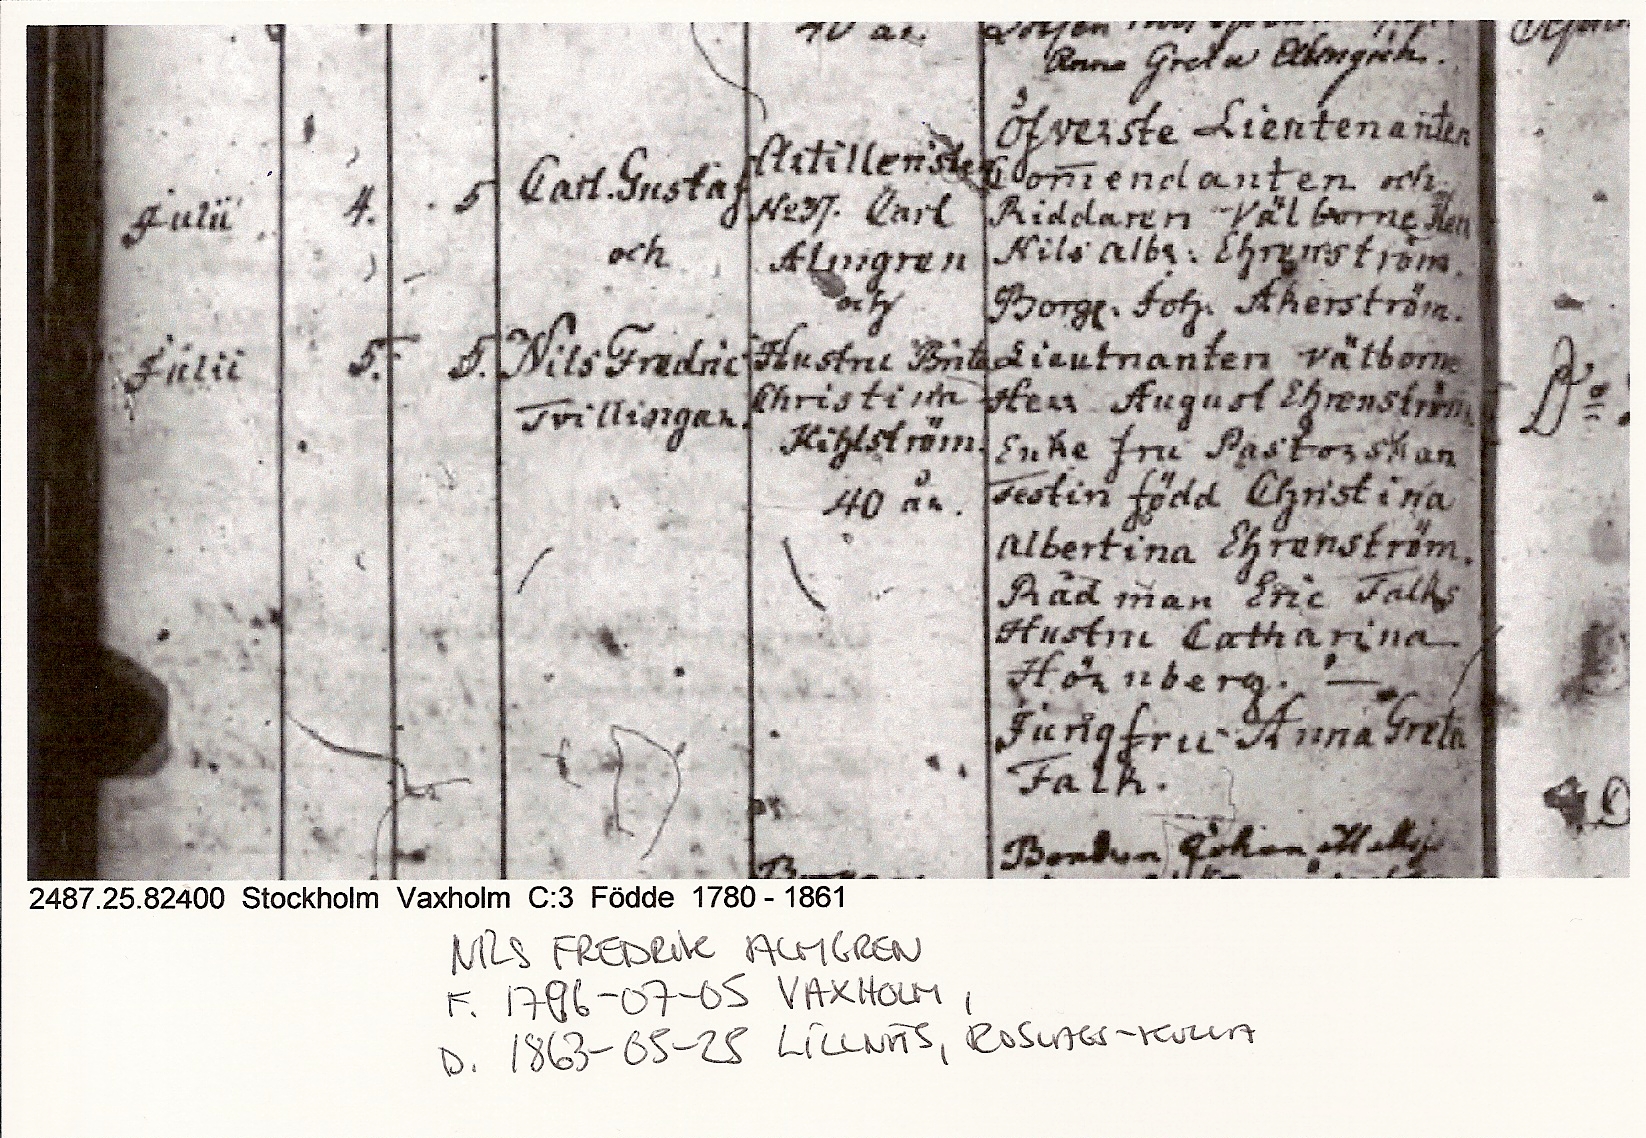 40 år.
Anna Greta Almgren.
Julii 4. 5 Carl Gustaf
och
Julii 5. 5. Nils Fredric
Tvillingar.
Artilleristen
No 37. Carl
Almgren
och
Hustru Brita
Christina
Kihlström.
40 år.
Öfverste Lieutenanten
Comendanten och
Riddaren Välborne Herr
Nils Albr: Ehrenström.
Borgr. Joh. Åkerström.
Lieutnanten Välborne
Herr August Ehrenström
Enke fru Pastorskan
Testin född Christina
Albertina Ehrenström.
Rådman Eric Falks
Hustru Catharina
Hörnberg. —
Jungfru Anna Greta
Falk.
Do
Bonden Johan
2487.25.82400 Stockholm Vaxholm C:3 Födde 1780 - 1861
NILS FREDRIK ALMGREN
F. 1796-07-05 VAXHOLM,
D. 1863-05-25 LILLNÄS, ROSLAGS-KULLA